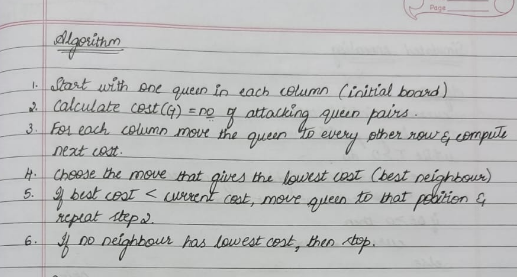 Page
Algorithm
1. Start with one queen in each column (initial board)
2. Calculate cost(G) = no of attacking queen pairs.
3. For each column move the queen to every other row & compute
next cost.
4. Choose the move that gives the lowest cost (best neighbour)
5. If best cost < current cost, move queen to that position &
repeat step 2.
6. If no neighbour has lowest cost, then stop.